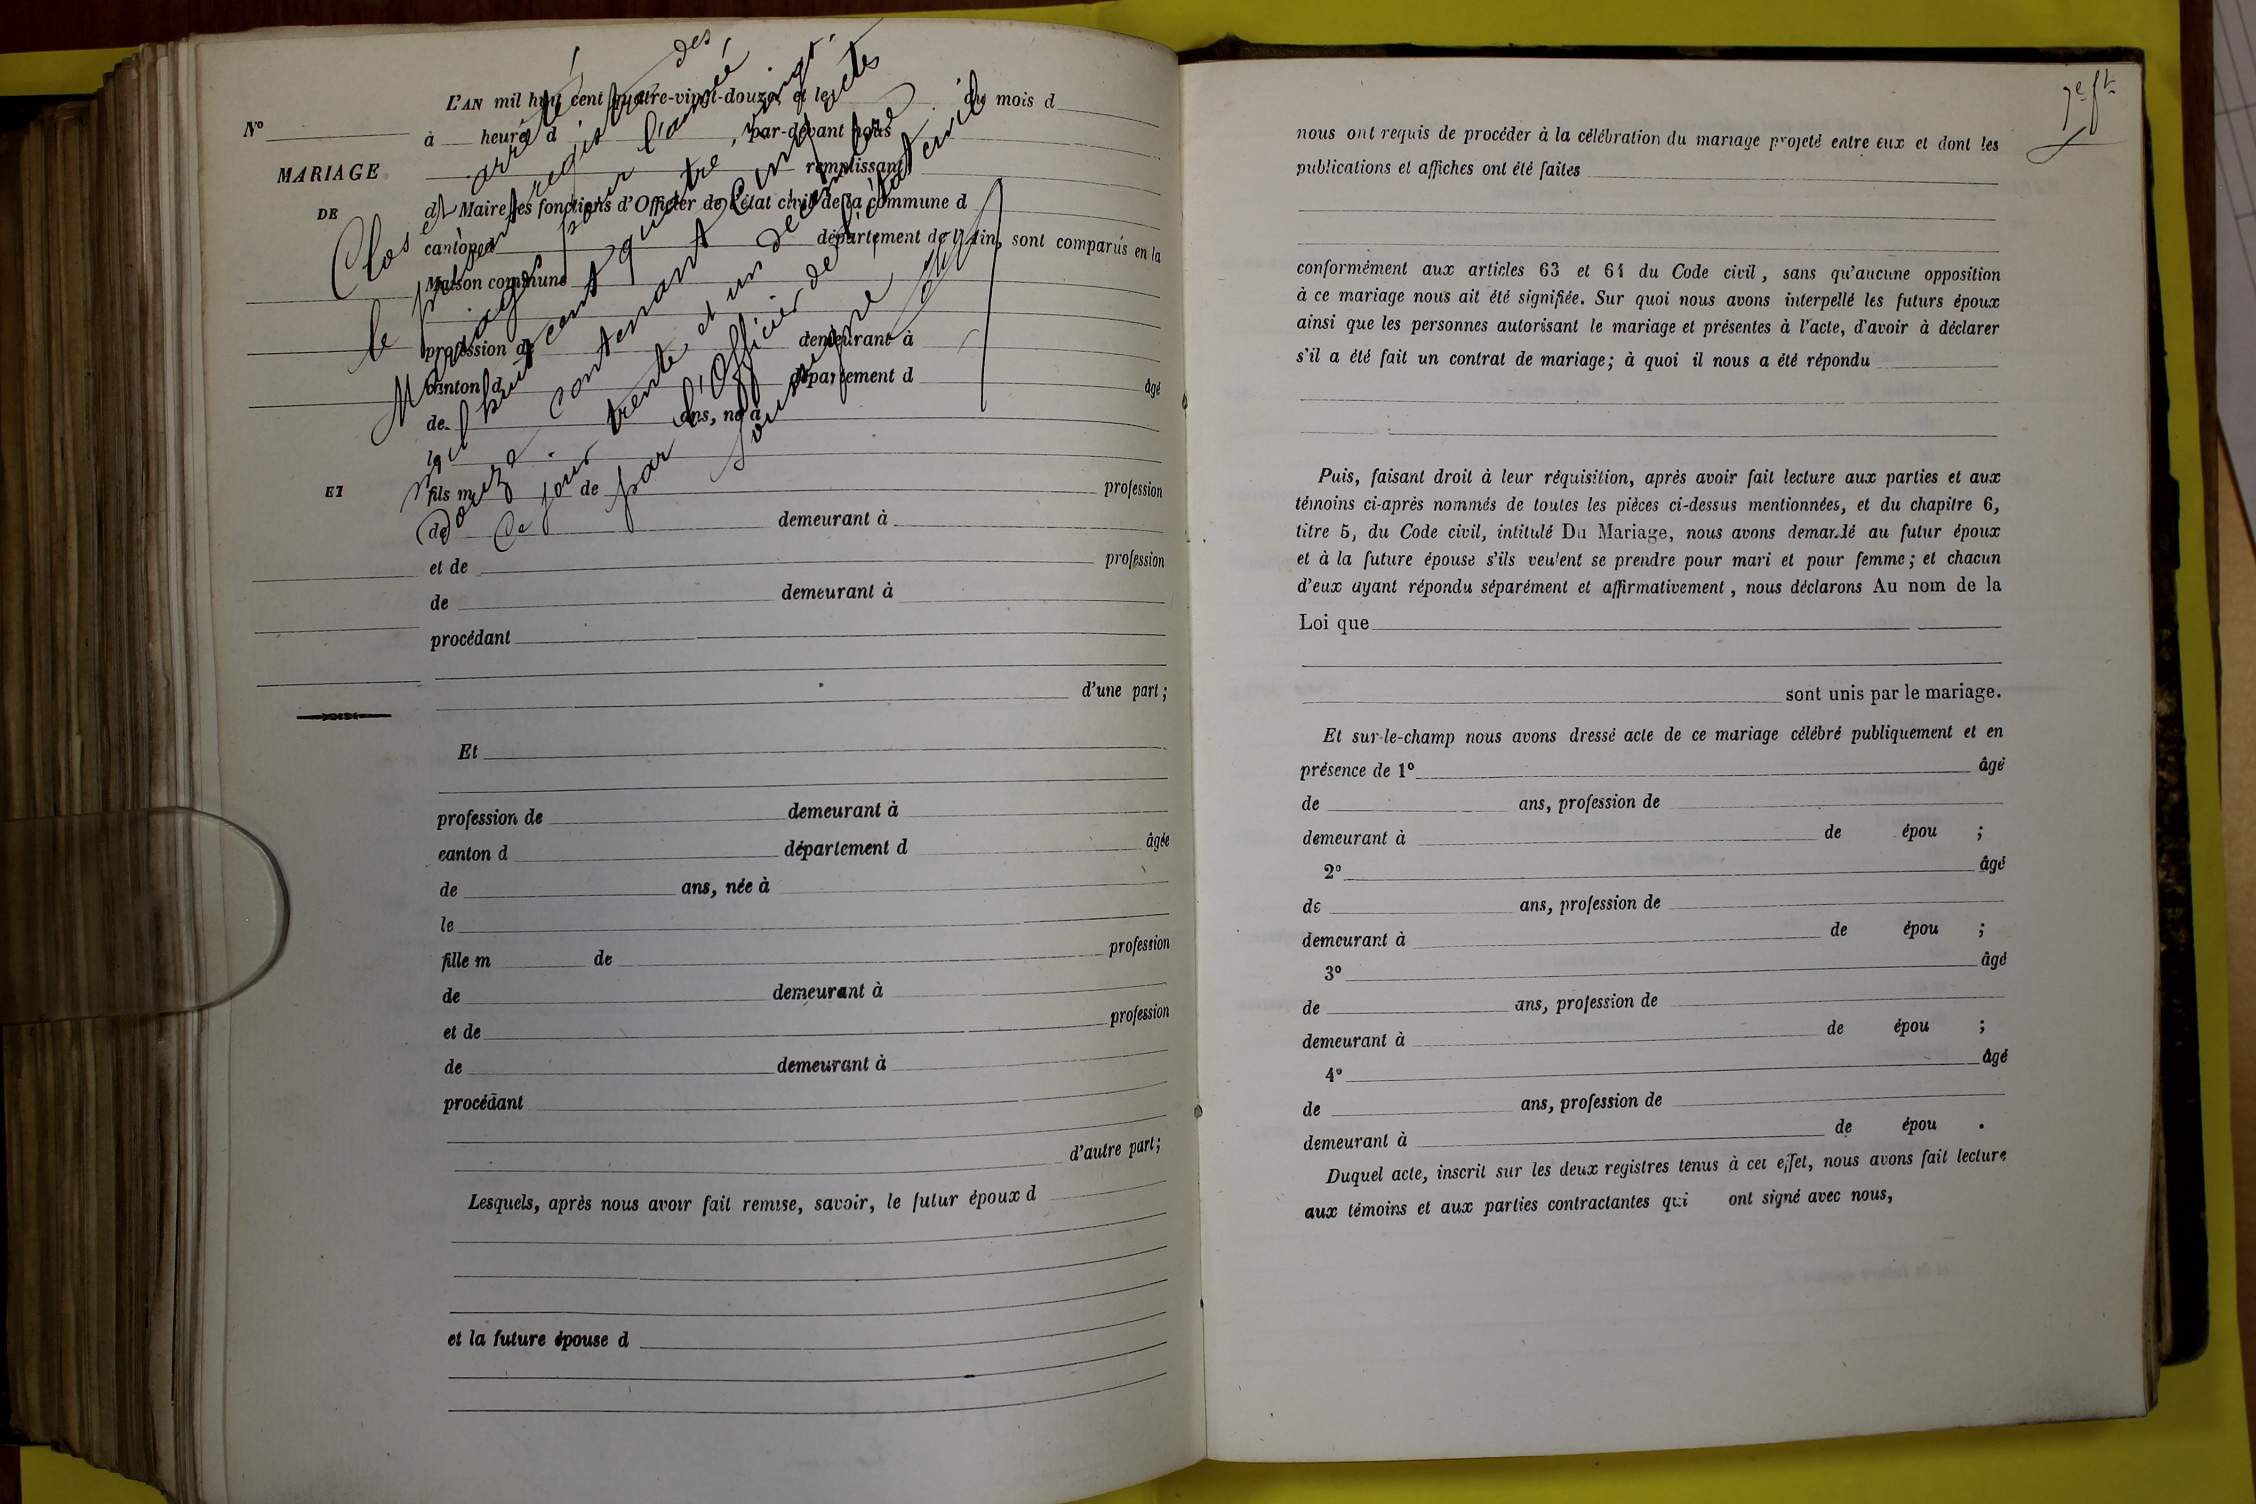 L'AN mil huit cent quatre-vingt-douze, et le du mois d
N° à heure d , par-devant nous
MARIAGE remplissant
DE d Maire les fonctions d'Officier de l'état civil de la commune d
canton d département de l'Ain, sont comparus en la
Maison commune
profession de demeurant à
canton d département d âgé
de ans, né à
le
ET fils m de profession
de demeurant à
et de profession
de demeurant à
procédant
d'une part;
Et
profession de demeurant à
canton d département d âgée
de ans, née à
le
fille m de profession
de demeurant à
et de profession
de demeurant à
procédant
d'autre part;
Lesquels, après nous avoir fait remise, savoir, le futur époux d
et la future épouse d
Clos et arrêté
le présent registre des
Mariages pour l'année
mil huit cent quatre-vingt-
douze. contenant cinq actes
Ce jour trente et un décembre
par l'Officier de l'état civil
soussigné
7e ft
nous ont requis de procéder à la célébration du mariage projeté entre eux et dont les
publications et affiches ont été faites
conformément aux articles 63 et 64 du Code civil, sans qu'aucune opposition
à ce mariage nous ait été signifiée. Sur quoi nous avons interpellé les futurs époux
ainsi que les personnes autorisant le mariage et présentes à l'acte, d'avoir à déclarer
s'il a été fait un contrat de mariage; à quoi il nous a été répondu
Puis, faisant droit à leur réquisition, après avoir fait lecture aux parties et aux
témoins ci-après nommés de toutes les pièces ci-dessus mentionnées, et du chapitre 6,
titre 5, du Code civil, intitulé Du Mariage, nous avons demandé au futur époux
et à la future épouse s'ils veulent se prendre pour mari et pour femme; et chacun
d'eux ayant répondu séparément et affirmativement, nous déclarons Au nom de la
Loi que
sont unis par le mariage.
Et sur-le-champ nous avons dressé acte de ce mariage célébré publiquement et en
présence de 1° âgé
de ans, profession de
demeurant à de épou ;
2° âgé
de ans, profession de
demeurant à de épou ;
3° âgé
de ans, profession de
demeurant à de épou ;
4° âgé
de ans, profession de
demeurant à de épou .
Duquel acte, inscrit sur les deux registres tenus à cet effet, nous avons fait lecture
aux témoins et aux parties contractantes qui ont signé avec nous,